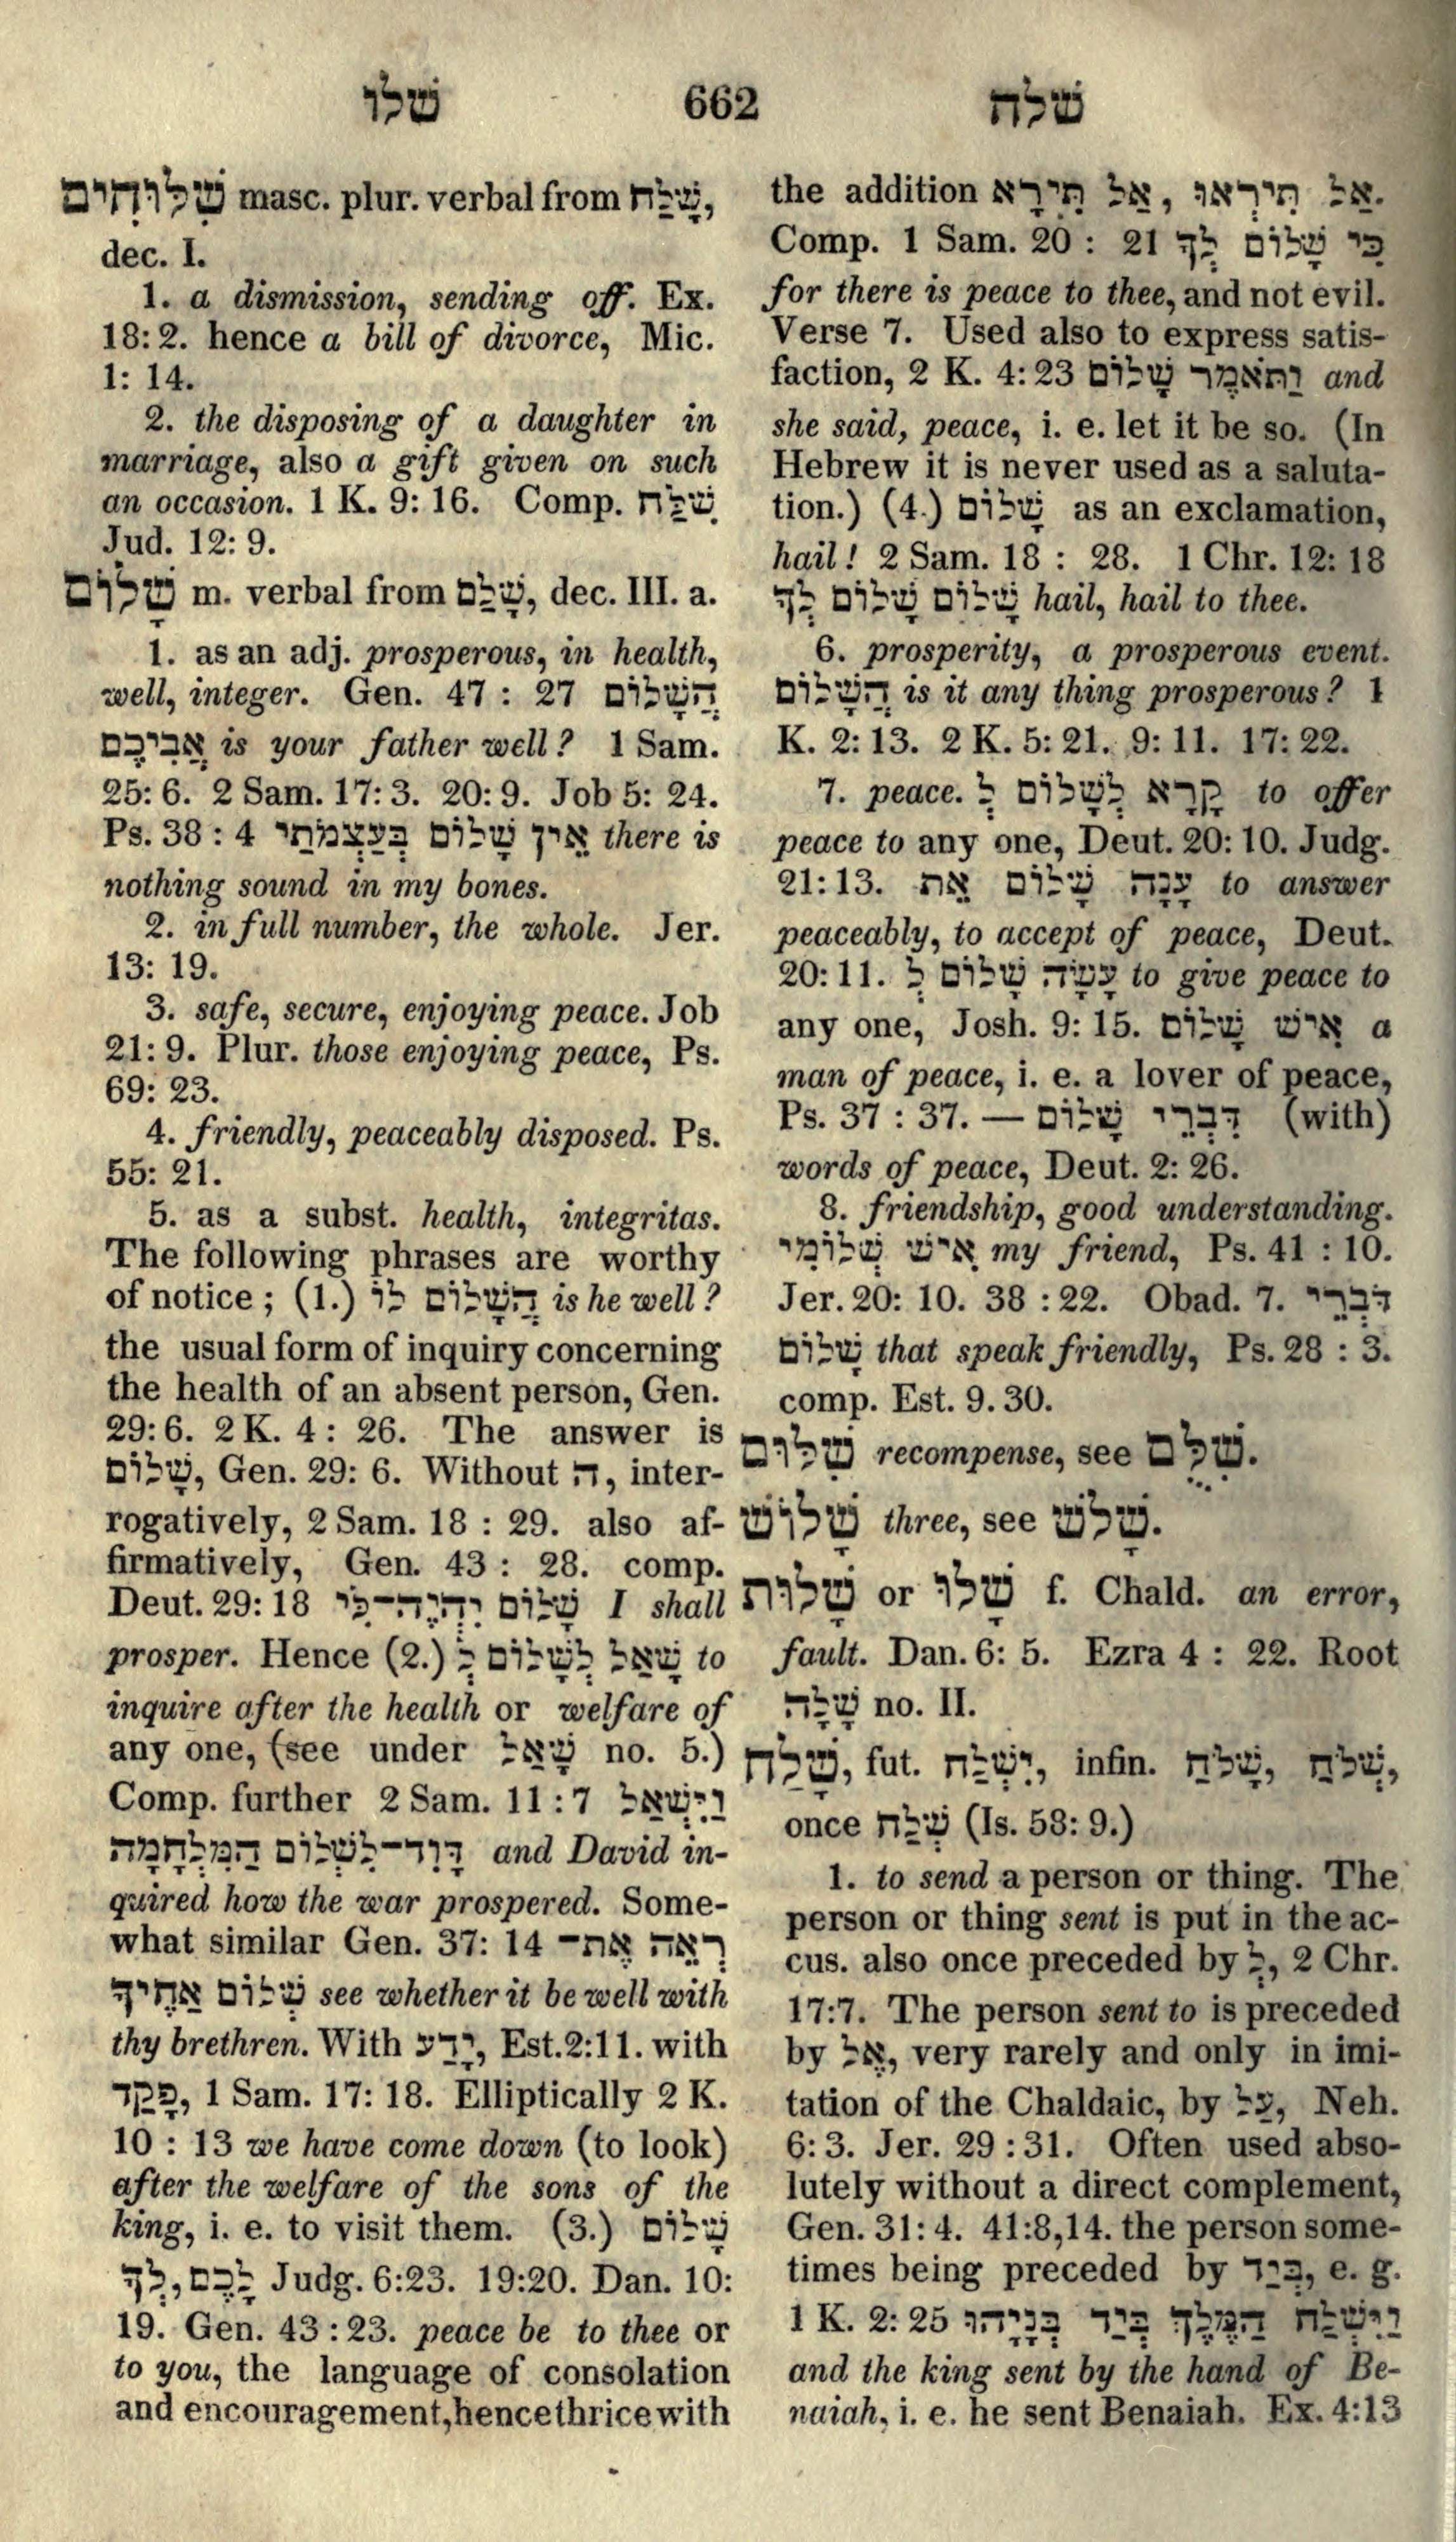 שלו 662 שלח
שִׁלּוּחִים masc. plur. verbal from שָׁלַח,
dec. I.
1. a dismission, sending off. Ex.
18: 2. hence a bill of divorce, Mic.
1: 14.
2. the disposing of a daughter in
marriage, also a gift given on such
an occasion. 1 K. 9: 16. Comp. שִׁלַּח
Jud. 12: 9.
שָׁלוֹם m. verbal from שָׁלַם, dec. III. a.
1. as an adj. prosperous, in health,
well, integer. Gen. 47 : 27 הֲשָׁלוֹם
אֲבִיכֶם is your father well? 1 Sam.
25: 6. 2 Sam. 17: 3. 20: 9. Job 5: 24.
Ps. 38 : 4 אֵין שָׁלוֹם בַּעֲצָמַי there is
nothing sound in my bones.
2. in full number, the whole. Jer.
13: 19.
3. safe, secure, enjoying peace. Job
21: 9. Plur. those enjoying peace, Ps.
69: 23.
4. friendly, peaceably disposed. Ps.
55: 21.
5. as a subst. health, integritas.
The following phrases are worthy
of notice ; (1.) הֲשָׁלוֹם לוֹ is he well?
the usual form of inquiry concerning
the health of an absent person, Gen.
29: 6. 2 K. 4 : 26. The answer is
שָׁלוֹם, Gen. 29: 6. Without ה, inter-
rogatively, 2 Sam. 18 : 29. also af-
firmatively, Gen. 43 : 28. comp.
Deut. 29: 18 שָׁלוֹם יִהְיֶה־לִּי I shall
prosper. Hence (2.) שָׁאַל לְשָׁלוֹם לְ to
inquire after the health or welfare of
any one, (see under שָׁאַל no. 5.)
Comp. further 2 Sam. 11 : 7 וַיִּשְׁאַל
דָּוִד־לִשְׁלוֹם הַמִּלְחָמָה and David in-
quired how the war prospered. Some-
what similar Gen. 37: 14 רְאֵה אֶת־
שְׁלוֹם אַחֶיךָ see whether it be well with
thy brethren. With יָדַע, Est.2:11. with
פָּקַד, 1 Sam. 17: 18. Elliptically 2 K.
10 : 13 we have come down (to look)
after the welfare of the sons of the
king, i. e. to visit them. (3.) שָׁלוֹם
לָכֶם, לְךָ Judg. 6:23. 19:20. Dan. 10:
19. Gen. 43 : 23. peace be to thee or
to you, the language of consolation
and encouragement, hence thrice with
the addition אַל תִּירָא, אַל תִּירְאוּ.
Comp. 1 Sam. 20 : 21 כִּי שָׁלוֹם לְךָ
for there is peace to thee, and not evil.
Verse 7. Used also to express satis-
faction, 2 K. 4: 23 וַתֹּאמֶר שָׁלוֹם and
she said, peace, i. e. let it be so. (In
Hebrew it is never used as a saluta-
tion.) (4.) שָׁלוֹם as an exclamation,
hail! 2 Sam. 18 : 28. 1 Chr. 12: 18
שָׁלוֹם שָׁלוֹם לְךָ hail, hail to thee.
6. prosperity, a prosperous event.
הֲשָׁלוֹם is it any thing prosperous? 1
K. 2: 13. 2 K. 5: 21. 9: 11. 17: 22.
7. peace. קָרָא לְשָׁלוֹם לְ to offer
peace to any one, Deut. 20: 10. Judg.
21: 13. עָנָה שָׁלוֹם אֵת to answer
peaceably, to accept of peace, Deut.
20: 11. עָשָׂה שָׁלוֹם לְ to give peace to
any one, Josh. 9: 15. אִישׁ שָׁלוֹם a
man of peace, i. e. a lover of peace,
Ps. 37 : 37. — דִּבְרֵי שָׁלוֹם (with)
words of peace, Deut. 2: 26.
8. friendship, good understanding.
אִישׁ שְׁלוֹמִי my friend, Ps. 41 : 10.
Jer. 20: 10. 38 : 22. Obad. 7. דֹּבְרֵי
שָׁלוֹם that speak friendly, Ps. 28 : 3.
comp. Est. 9. 30.
שִׁלּוּם recompense, see שִׁלֻּם.
שָׁלוֹשׁ three, see שָׁלֹשׁ.
שָׁלוּת or שָׁלוּ f. Chald. an error,
fault. Dan. 6: 5. Ezra 4 : 22. Root
שָׁלָה no. II.
שָׁלַח, fut. יִשְׁלַח, infin. שָׁלֹחַ, שְׁלֹחַ,
once שְׁלַח (Is. 58: 9.)
1. to send a person or thing. The
person or thing sent is put in the ac-
cus. also once preceded by לְ, 2 Chr.
17:7. The person sent to is preceded
by אֶל, very rarely and only in imi-
tation of the Chaldaic, by עַל, Neh.
6: 3. Jer. 29 : 31. Often used abso-
lutely without a direct complement,
Gen. 31: 4. 41:8,14. the person some-
times being preceded by בְּיַד, e. g.
1 K. 2: 25 וַיִּשְׁלַח הַמֶּלֶךְ בְּיַד בְּנָיָהוּ
and the king sent by the hand of Be-
naiah, i. e. he sent Benaiah. Ex. 4:13